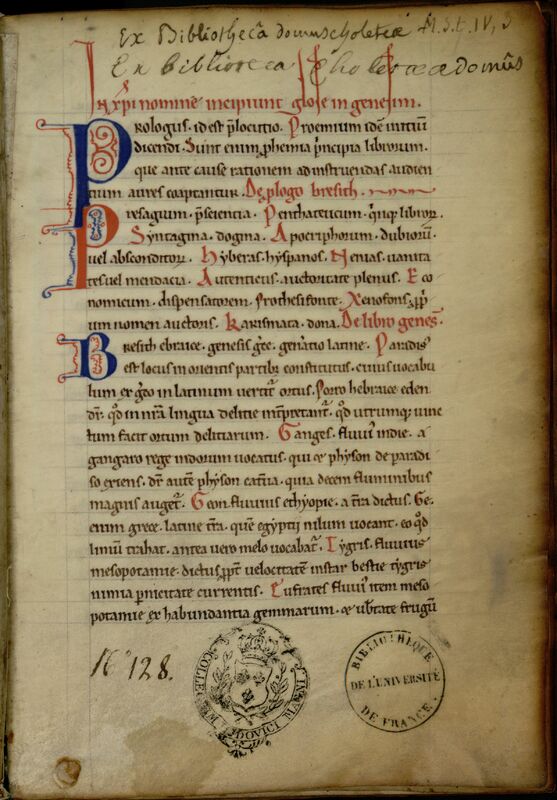 Ex Bibliothecâ domus scholetiæ M.S.t. IV, 3
Ex biblioteca scholetææ domûs
In xp̄i nomine incipiunt glose in genesim.
Prologus. id est p̄locutio. Proemium idē initiū
dicendi. Sunt enim prohemia p̄ncipia librorum.
que ante cause rationem ad instruendas audien
tium aures coaptantur. De plogo bresith.
Presagum. p̄scientia. Penthateucum. quinq; libror.
Syntagma. dogma. Apocriphorum. dubiorū.
uel absconditor. Hyberas. hyspanos. Nenias. uanita
tes uel mendacia. Autenticus. auctoritate plenus. Eco
nomicum. dispensatorem. Xenofons. ppͥ
um nomen auctoris. Karismata. dona. De libro genes̄.
Bresith ebraice. genesis gͨce. genatio latine. Paradisͥ
est locus in orientis partibꝫ constitutus. cuius uocabu
lum ex gͨco in latinum uertitͬ ortus. Porro hebraice eden
dr̄. qđ in nr̄a lingua delitie int̄pretantͬ. qđ utrumq; iunc
tum facit ortum delitiarum. Ganges. fluuiͥ indie. a
gangaro rege indorum uocatus. qui & physon de paradi
so exiens. dr̄ autē physon cat̄ua. quia decem fluminibus
magnis augetͬ. Geon. fluuius ethyopie. a t̄ra dictus. Ge.
enim grece. latine t̄ra. quē egyptii nilum uocant. eo qđ
limū trahat. antea uero melo uocabatͬ. Tygris. fluuius
mesopotamie. dictus ppt̄ uelocitatē instar bestie tygris
nimia p̄nicitate currentis. Eufrates fluuiͥ item meso
potamie ex habundantia gemmarum. & ub̄tate frugū
No 128.
COLLEG. LUDOVICI MAGNI
BIBLIOTHÈQUE
DE L'UNIVERSITÉ
DE FRANCE.